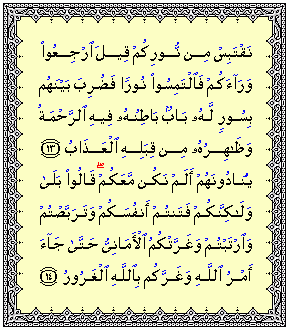 نَقْتَبِسْ مِن نُّورِكُمْ قِيلَ ٱرْجِعُوا۟
وَرَآءَكُمْ فَٱلْتَمِسُوا۟ نُورًا فَضُرِبَ بَيْنَهُم
بِسُورٍ لَّهُۥ بَابٌۢ بَاطِنُهُۥ فِيهِ ٱلرَّحْمَةُ
وَظَٰهِرُهُۥ مِن قِبَلِهِ ٱلْعَذَابُ ١٣
يُنَادُونَهُمْ أَلَمْ نَكُن مَّعَكُمْ ۖ قَالُوا۟ بَلَىٰ
وَلَٰكِنَّكُمْ فَتَنتُمْ أَنفُسَكُمْ وَتَرَبَّصْتُمْ
وَٱرْتَبْتُمْ وَغَرَّتْكُمُ ٱلْأَمَانِىُّ حَتَّىٰ جَآءَ
أَمْرُ ٱللَّهِ وَغَرَّكُم بِٱللَّهِ ٱلْغَرُورُ ١٤